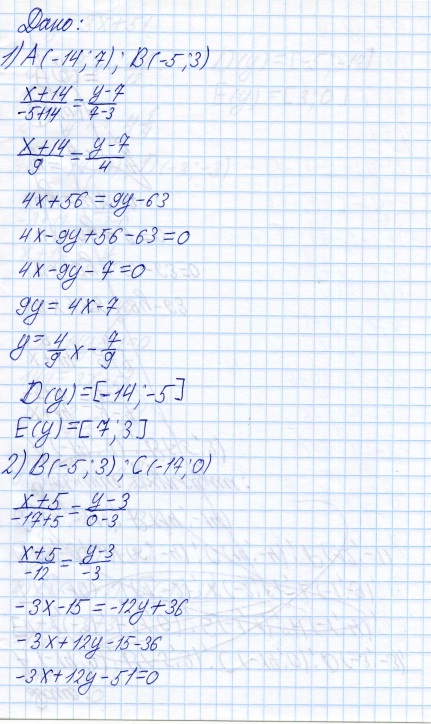 Дано:
1) A(-14; 7); B(-5; 3)
(x+14)/(-5+14) = (y-7)/(7-3)
(x+14)/9 = (y-7)/4
4x+56 = 9y-63
4x-9y+56-63=0
4x-9y-7=0
9y = 4x-7
y = 4/9 x - 7/9
D(y)=[-14; -5]
E(y)=[7; 3]
2) B(-5; 3); C(-17; 0)
(x+5)/(-17+5) = (y-3)/(0-3)
(x+5)/(-12) = (y-3)/(-3)
-3x-15 = -12y+36
-3x+12y-15-36
-3x+12y-51=0